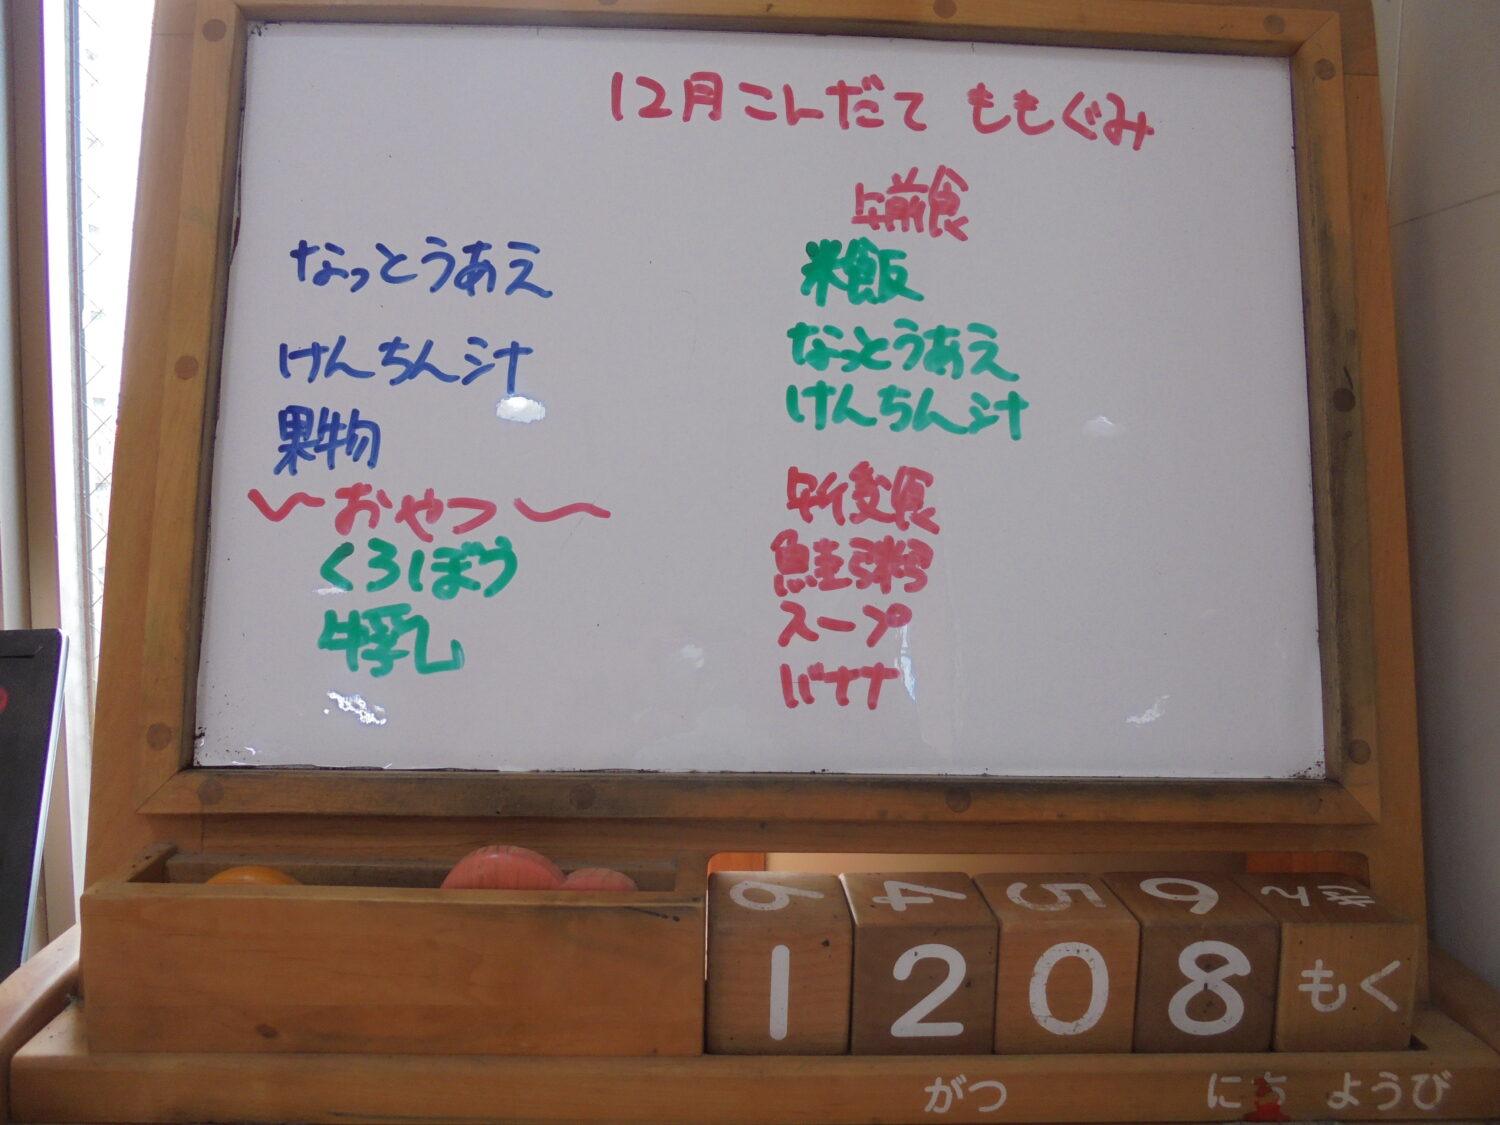 12月こんだて ももぐみ
なっとうあえ
けんちん汁
果物
〜おやつ〜
くろぼう
牛乳
午前食
米飯
なっとうあえ
けんちん汁
午後食
鮭粥
スープ
バナナ
6 4 5 9
1 2 0 8 もく
がつ にち ようび